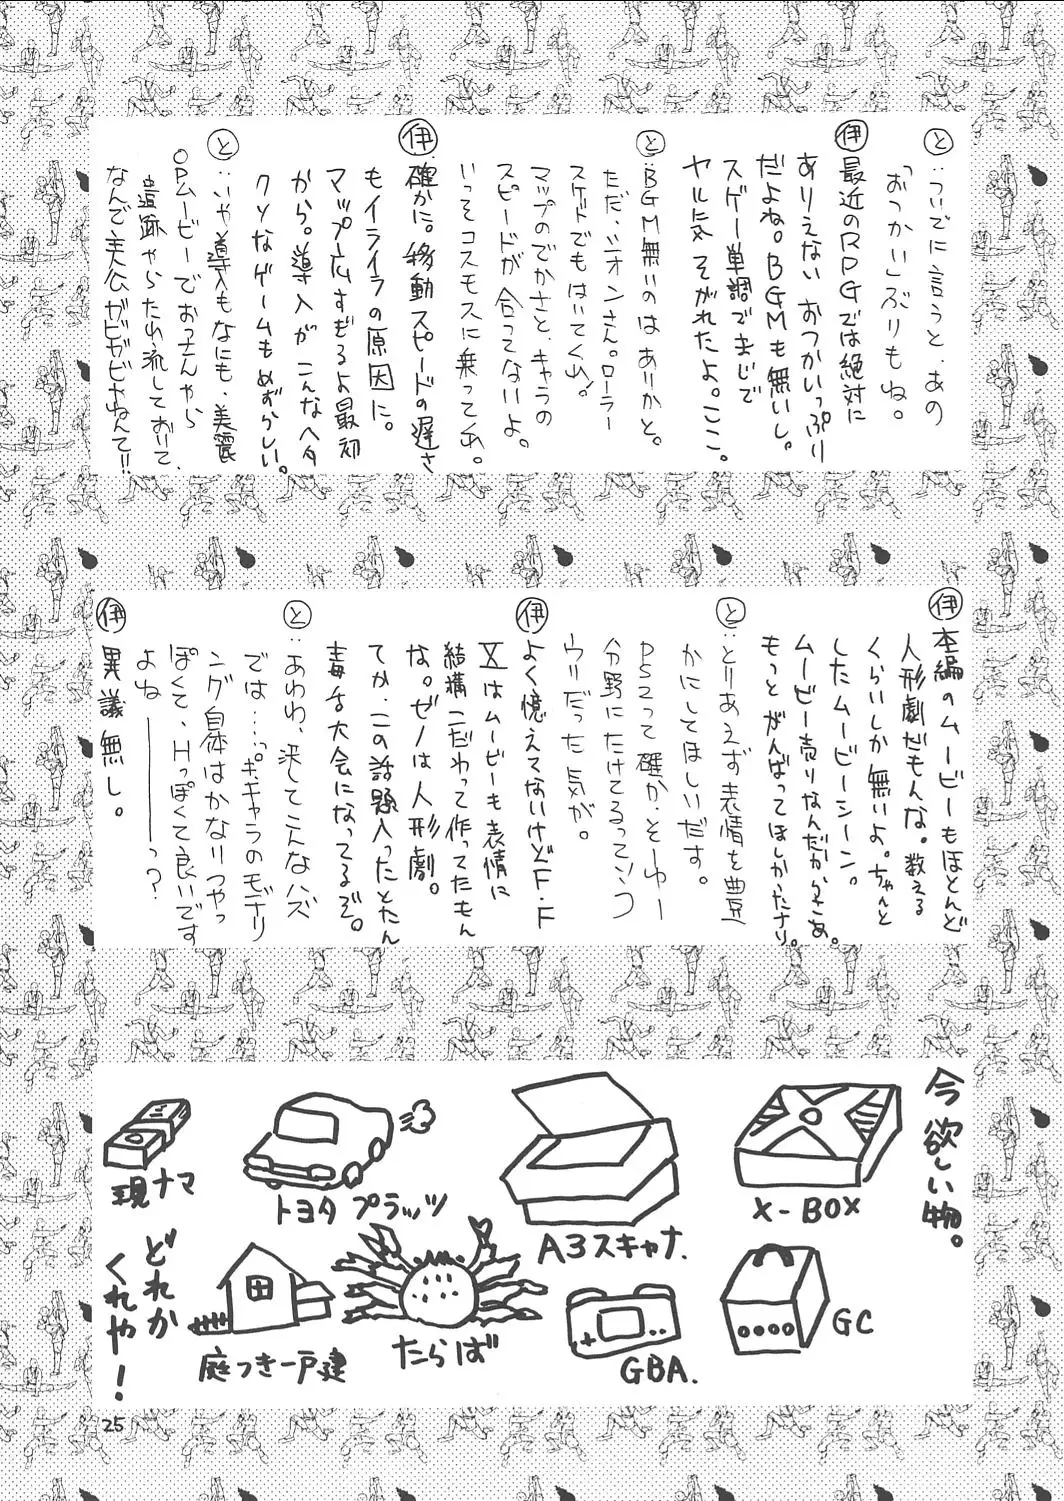 と:ついでに言うと、あの
「おつかい」ぶりもね。
伊 最近のRPGでは絶対に
ありえないおつかいっぷり
だよね。BGMも無いし。
スゲー単調でまじで
ヤル気そがれたよ。ここ。
と:BGM無いのはありかと。
ただ、シオンさん。ローラー
スケートでもはいてくれ!
マップのでかさと、キャラの
スピードが合ってないよ。
いっそコスモスに乗ってくれ。
伊 確かに。移動スピードの遅さ
もイライラの原因に。
マップ広すぎるよ最初
から。導入がこんなヘタ
クソなゲームもめずらしい。
と:いや導入もなにも、美麗
OPムービーでおっさんやら
遺跡やらたれ流しておいて、
なんで主人公がビビビやねんで!!
伊 本編のムービーもほとんど
人形劇だもんな。数える
くらいしか無いよ。ちゃんと
したムービーシーン。
ムービー売りなんだからさあ。
もっとがんばってほしかったナリ。
と:とりあえず表情を豊
かにしてほしいだす。
PS2って確か、そーゆー
分野にたけてるっていう
ウリだった気が。
伊 よく憶えてないけどF・F
Xはムービーも表情に
結構こだわって作ってたもん
な。ゼノは人形劇。
てか、この話題入ったとたん
毒舌大会になってるぞ。
と:あわわ、決してこんなハズ
では…。キャラのモデリ
ング自体はかなりつやっ
ぽくて、Hっぽくて良いです
よね———っ?
伊 異議無し。
今欲しい物。
X-BOX
A3スキャナ.
トヨタプラッツ
現ナマ
GC
GBA.
たらば
庭つき一戸建
どれか
くれや!
25